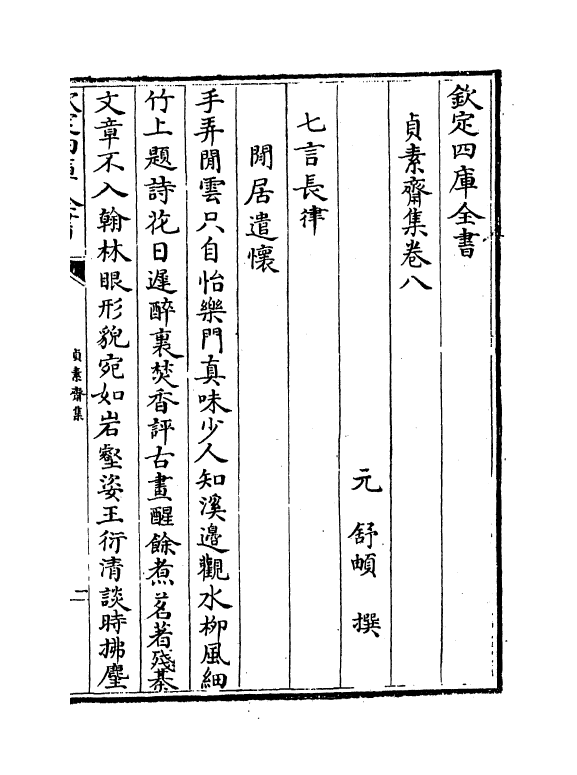 欽定四庫全書
貞素齋集卷八
元 舒頔 撰
七言長律
閒居遣懷
手弄閒雲只自怡樂門真味少人知溪邊觀水柳風細
竹上題詩花日遲醉裏焚香評古畫醒餘煮茗著殘棊
文章不入翰林眼形貌宛如岩壑姿王衍清談時拂麈
欽定四庫全書
貞素齋集